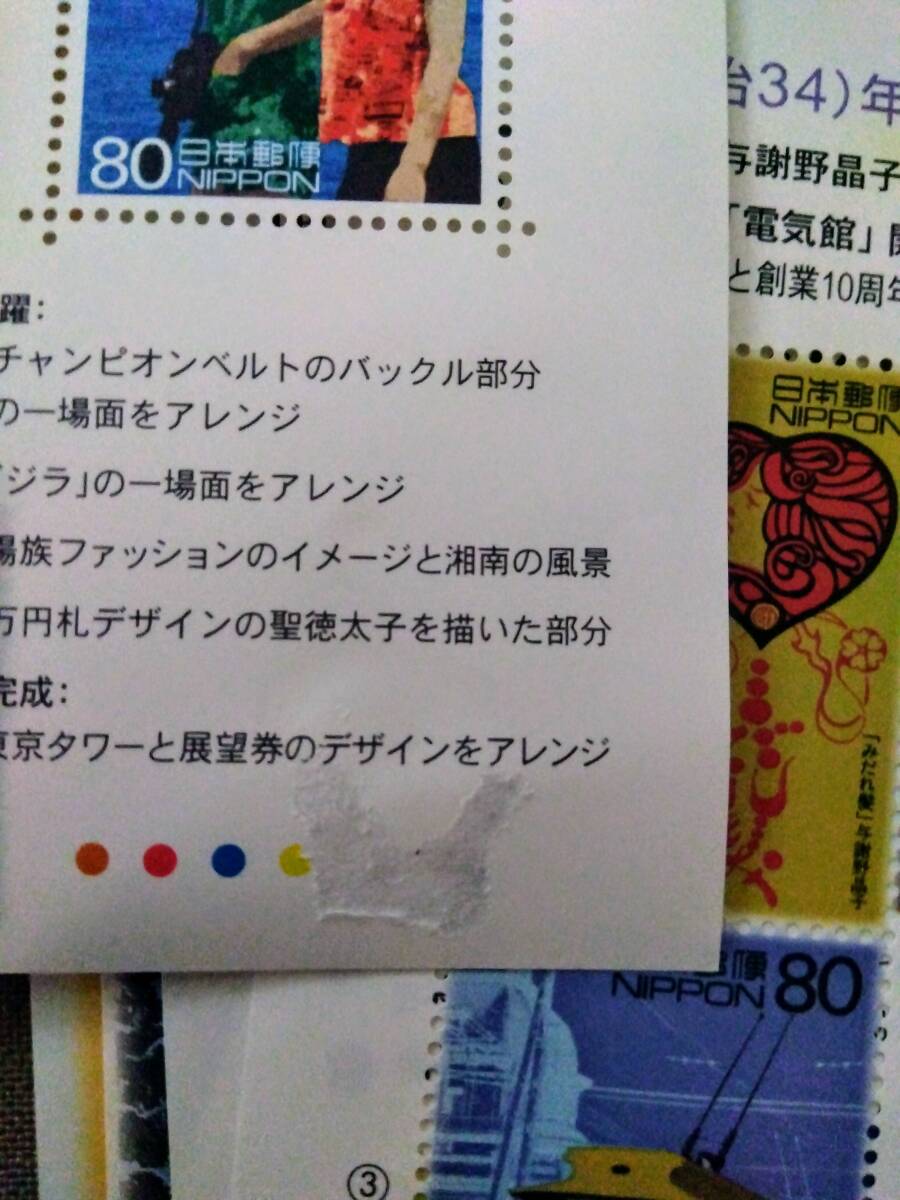 80 日本郵便
NIPPON
躍：
チャンピオンベルトのバックル部分
の一場面をアレンジ
ジラ」の一場面をアレンジ
陽族ファッションのイメージと湘南の風景
万円札デザインの聖徳太子を描いた部分
完成：
東京タワーと展望券のデザインをアレンジ
治34)年
与謝野晶子
「電気館」開
と創業10周年
日本郵便
NIPPON
「みだれ髪」与謝野晶子
郵便
NIPPON 80
③